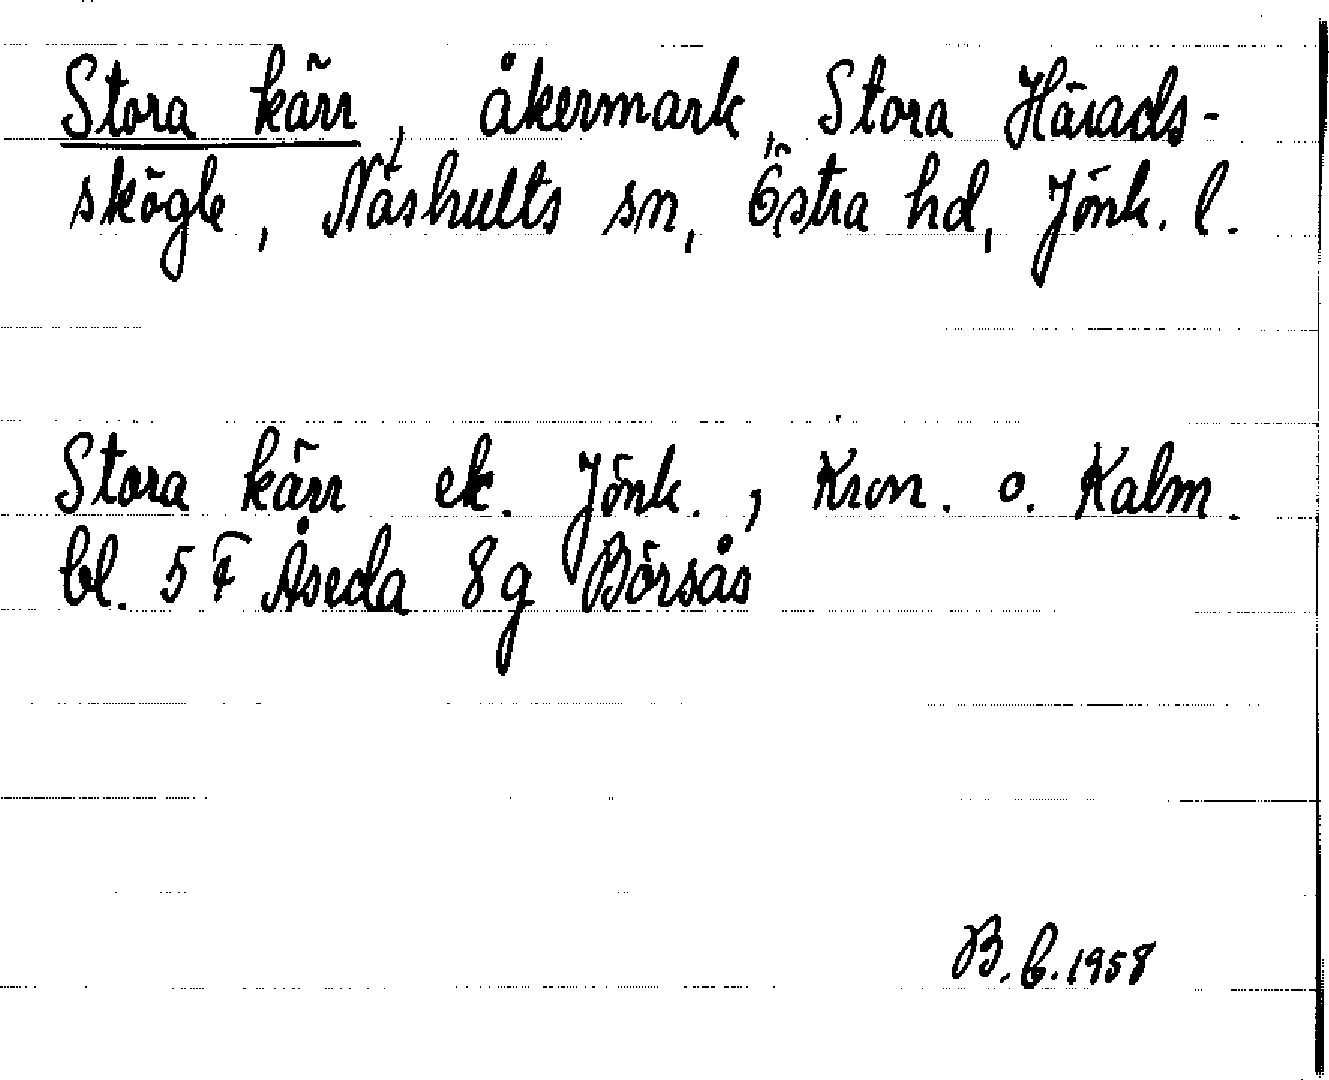 Stora kärr, åkermark, Stora Härads-
skögle, Näshults sn, Östra hd, Jönk. l.
Stora kärr ek. Jönk., Kron. o. Kalm.
bl. 5 F Åseda 8g Börsås
B. b. 1958